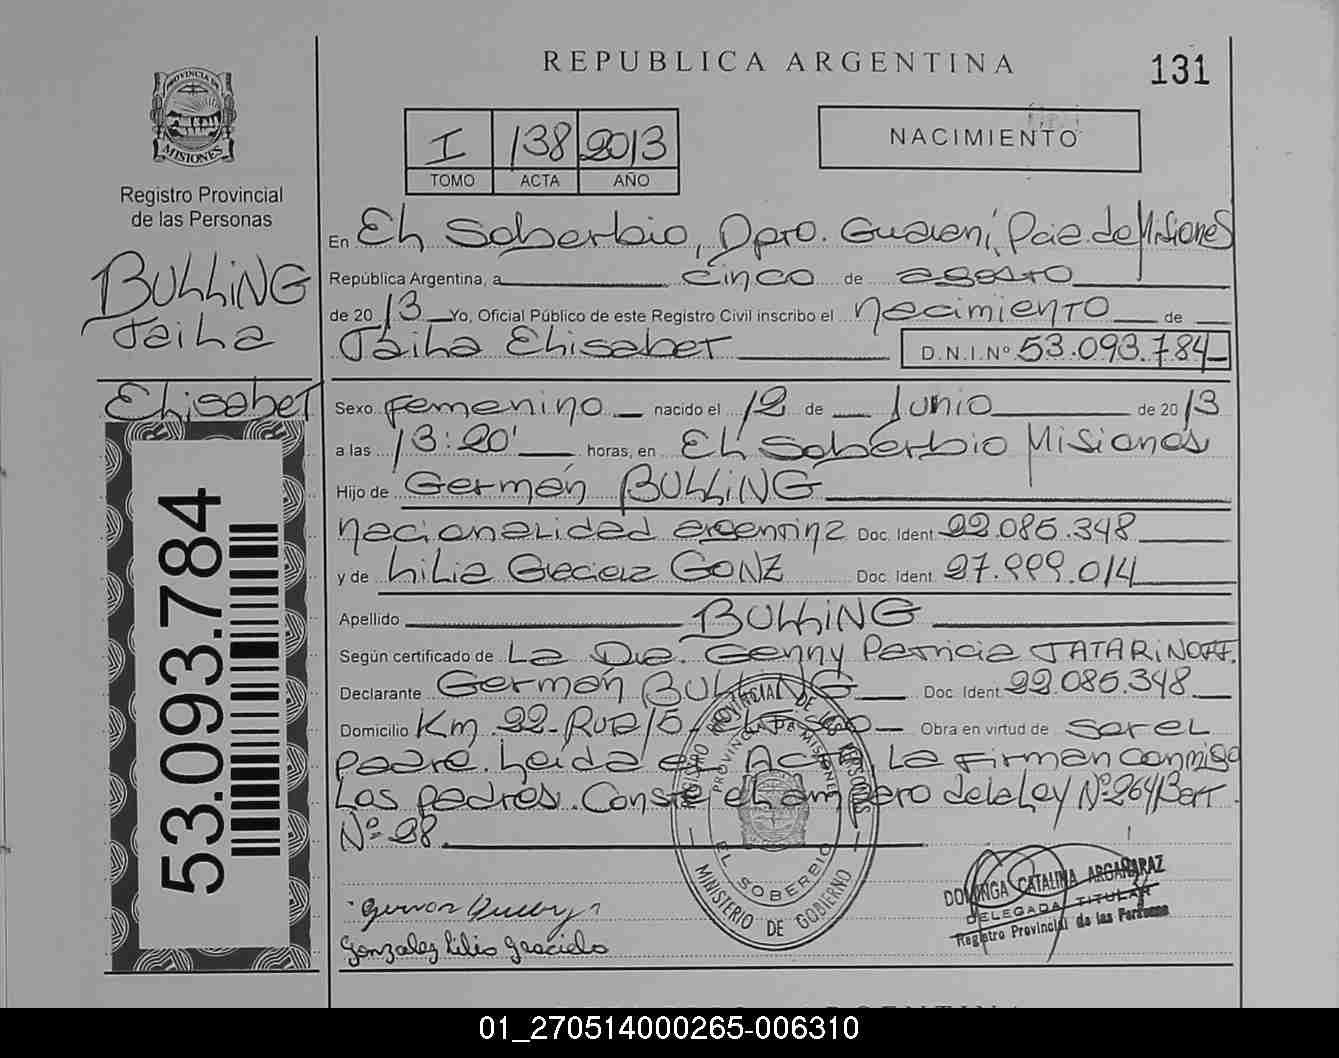 REPUBLICA ARGENTINA
131
PROVINCIA DE
MISIONES
Registro Provincial
de las Personas
I 138 2013
TOMO ACTA AÑO
NACIMIENTO
BULLING
Jaila
Elisabet
53.093.784
En El Soberbio, Dpto. Guaraní, Pcia. de Misiones
República Argentina, a cinco de agosto
de 2013 Yo, Oficial Público de este Registro Civil inscribo el nacimiento de
Jaila Elisabet D.N.I.Nº 53.093.784
Sexo femenino nacido el 12 de Junio de 2013
a las 13:20' horas, en El Soberbio Misiones
Hijo de Germán BULLING
nacionalidad argentina Doc. Ident. 22.085.348
y de Lilia Graciela GONZ Doc. Ident. 27.999.014
Apellido BULLING
Según certificado de La Dra. Genny Patricia TATARINOFF.
Declarante Germán BULLING Doc. Ident. 22.085.348
Domicilio Km. 22-Ruta 15- El Sob Obra en virtud de ser el
padre. Leida el Acta La firman conmigo
Los padres. Conste el ampero de la Ley Nº 264/Bert
Nº 28.
REGISTRO PROVINCIAL DE LAS PERSONAS
PROVINCIA DE MISIONES
EL SOBERBIO
MINISTERIO DE GOBIERNO
Gonzalez Lilia Graciela
DOMINGA CATALINA ARGAÑARAZ
DELEGADA TITULAR
Registro Provincial de las Personas
01_270514000265-006310